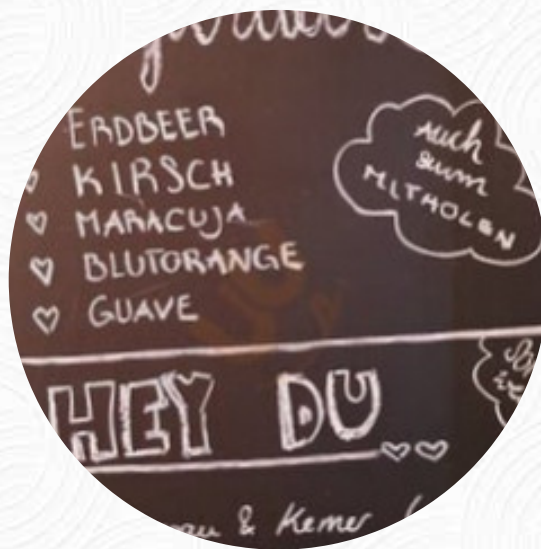 ERDBEER
KIRSCH
MARACUJA
BLUTORANGE
GUAVE
Auch
zum
MITHOLEN
HEY DU
& Kemer